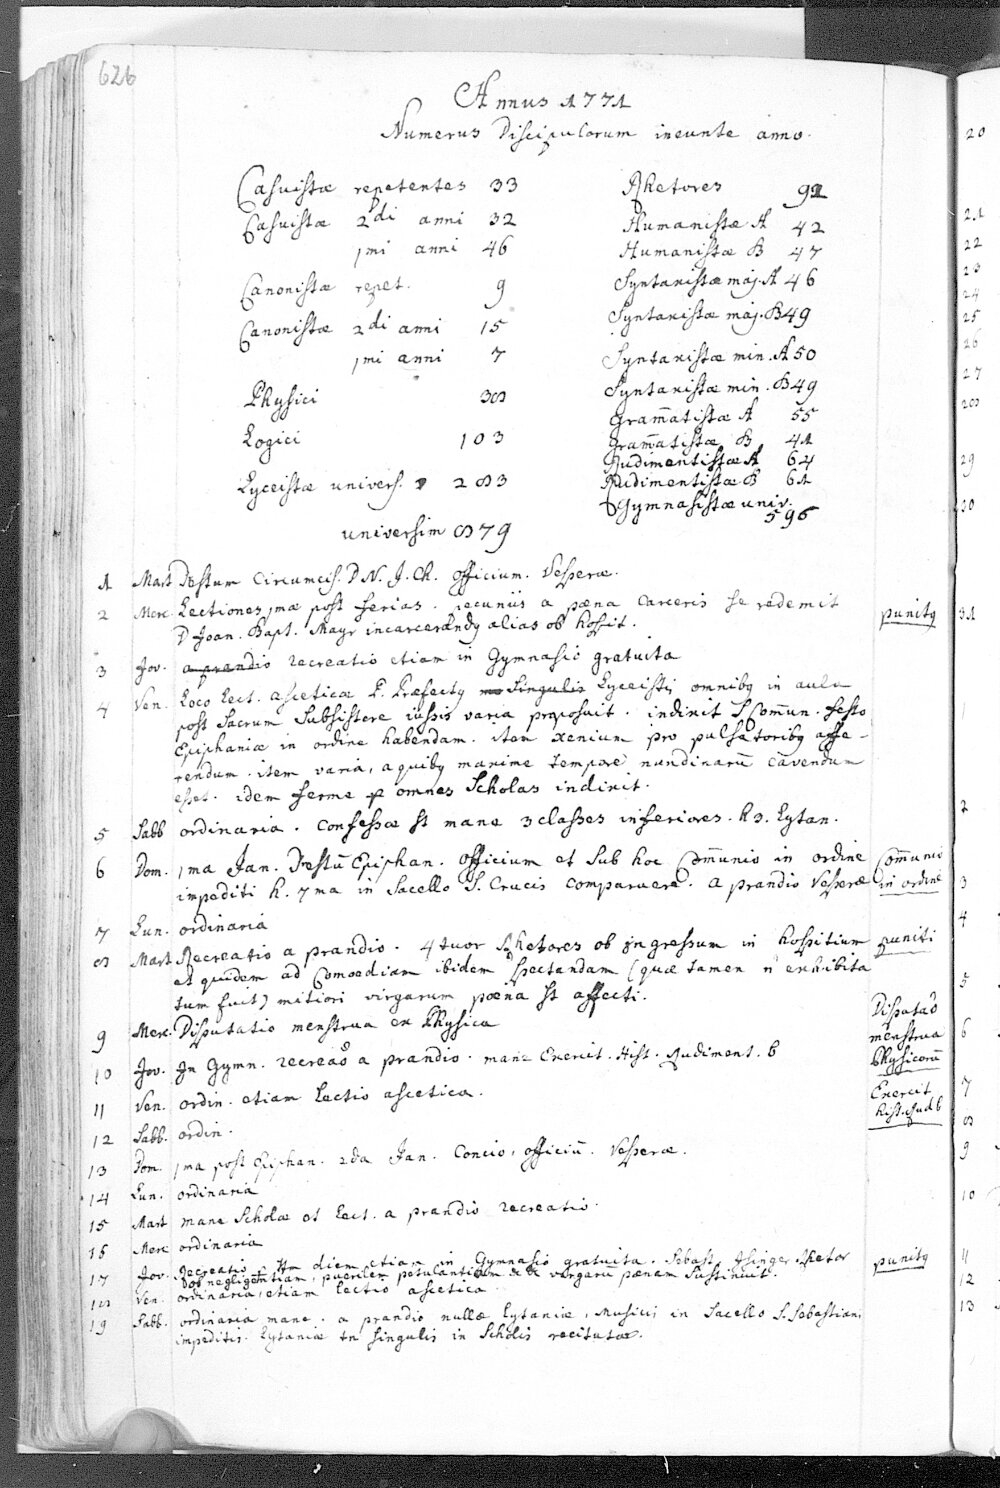 626
Annus 1771
Numerus Discipulorum ineunte anno.
Casuistæ repetentes 33
Casuistæ 2di anni 32
1mi anni 46
Canonistæ repet. 9
Canonistæ 2di anni 15
1mi anni 7
Physici 38
Logici 103
Lyceistæ univers. 283
Rhetores 91
Humanistæ A 42
Humanistæ B 47
Syntaxistæ maj. A 46
Syntaxistæ maj. B 49
Syntaxistæ min. A 50
Syntaxistæ min. B 49
Gram̄atistæ A 55
Gram̄atistæ B 41
Rudimentistæ A 64
Rudimentistæ B 61
Gymnasistæ univ.
596
universim 879
1 Mart Festum Circumcis. D N. J. Ch. officium. Vesperæ.
2 Merc. Lectiones 1mæ post ferias. pecuniis a pæna carceris se redemit punitq
D Joan. Bapt. Mayr incarcerandq alias ob hospit.
3 Jov. a prandio recreatio etiam in Gymnasio gratuita
4 Ven. Loco Lect. asceticæ P. Præfectq singulis Lyceistis omnibq in aula
post sacrum subsistere iussis varia proposuit. indixit S Com̄un. festo
Epiphaniæ in ordine habendam. item xenium pro pulsatoribq affe-
rendum. item varia, a quibq maxime tempore nundinarū cavendum
esset. idem ferme p omnes Scholas indixit.
5 Sabb ordinaria. Confessæ st mane 3 classes inferiores. h 3. Lytan.
6 Dom. 1ma Jan. Festū Epiphan. Officium et sub hoc Com̄unio in ordine Com̄unio
impediti h. 7ma in Sacello S. Crucis comparuere. a prandio Vesperæ in ordine
7 Lun. ordinaria
8 Mart Recreatio a prandio. 4tuor Rhetores ob ingressum in hospitium puniti
et quidem ad Comoediam ibidem spectandam (quæ tamen n̄ exhibita
tum fuit) mitiori virgarum pæna st affecti.
9 Merc. Disputatio menstrua ex Physica Disputaō
menstrua
Physicorū
10 Jov. In Gymn. recreaō a prandio. mane Exercit. Hist. Rudiment. b
11 Ven. ordin. etiam Lectio ascetica. Exercit
hist. Rud b
12 Sabb. ordin.
13 Dom. 1ma post Epiphan. 2da Jan. Concio, officiū. Vesperæ.
14 Lun. ordinaria
15 Mart mane Scholæ et Lect. a prandio recreatio.
16 Merc ordinaria
17 Jov. Recreatio p tm diem etiam in Gymnasio gratuita. Sebast. Rhetor punitq
ob negligentiam, puerilem petulantiam &c &c virgarū pænam sustinuit.
18 Ven. ordinaria, etiam lectio ascetica.
19 Sabb. ordinaria mane. a prandio nullæ Lytaniæ, Musicis in Sacello S. Sebastiani
impeditis. Lytaniæ tn singulis in Scholis recitatæ.
20
21
22
23
24
25
26
27
28
29
30
31
2
3
4
5
6
7
8
9
10
11
12
13